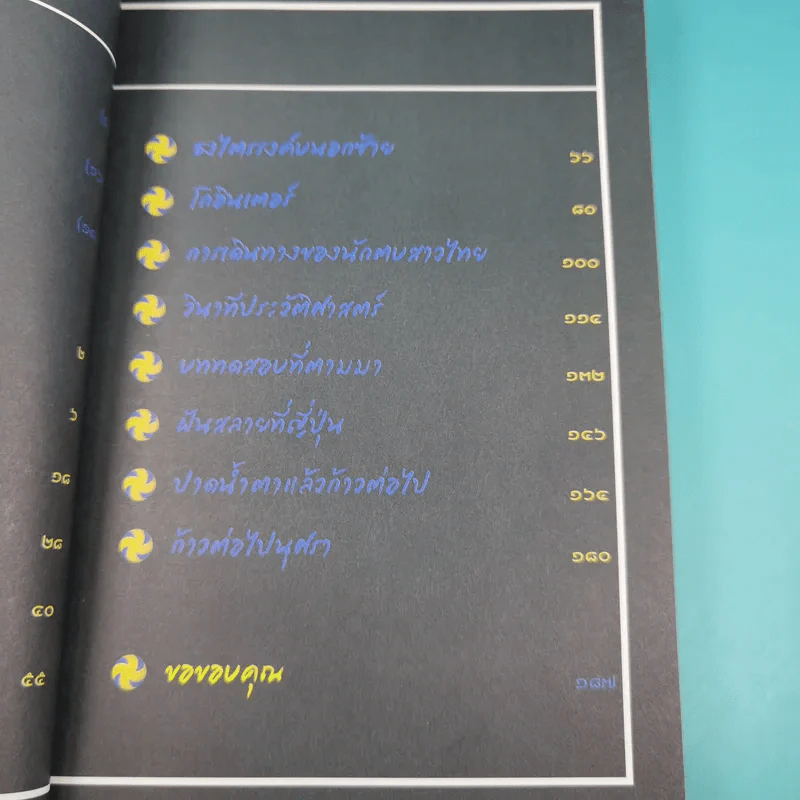 ๒
๖
๑๘
๒๘
๔๐
๕๕
ธงไตรรงค์บนอกซ้าย ๖๖
โกอินเตอร์ ๘๐
การเดินทางของนักตบสาวไทย ๑๐๐
วินาทีประวัติศาสตร์ ๑๑๔
บททดสอบที่ตามมา ๑๓๒
ฝันสลายที่ญี่ปุ่น ๑๔๖
ปาดน้ำตาแล้วก้าวต่อไป ๑๖๔
ก้าวต่อไปนุศรา ๑๘๐
ขอขอบคุณ ๑๘๗